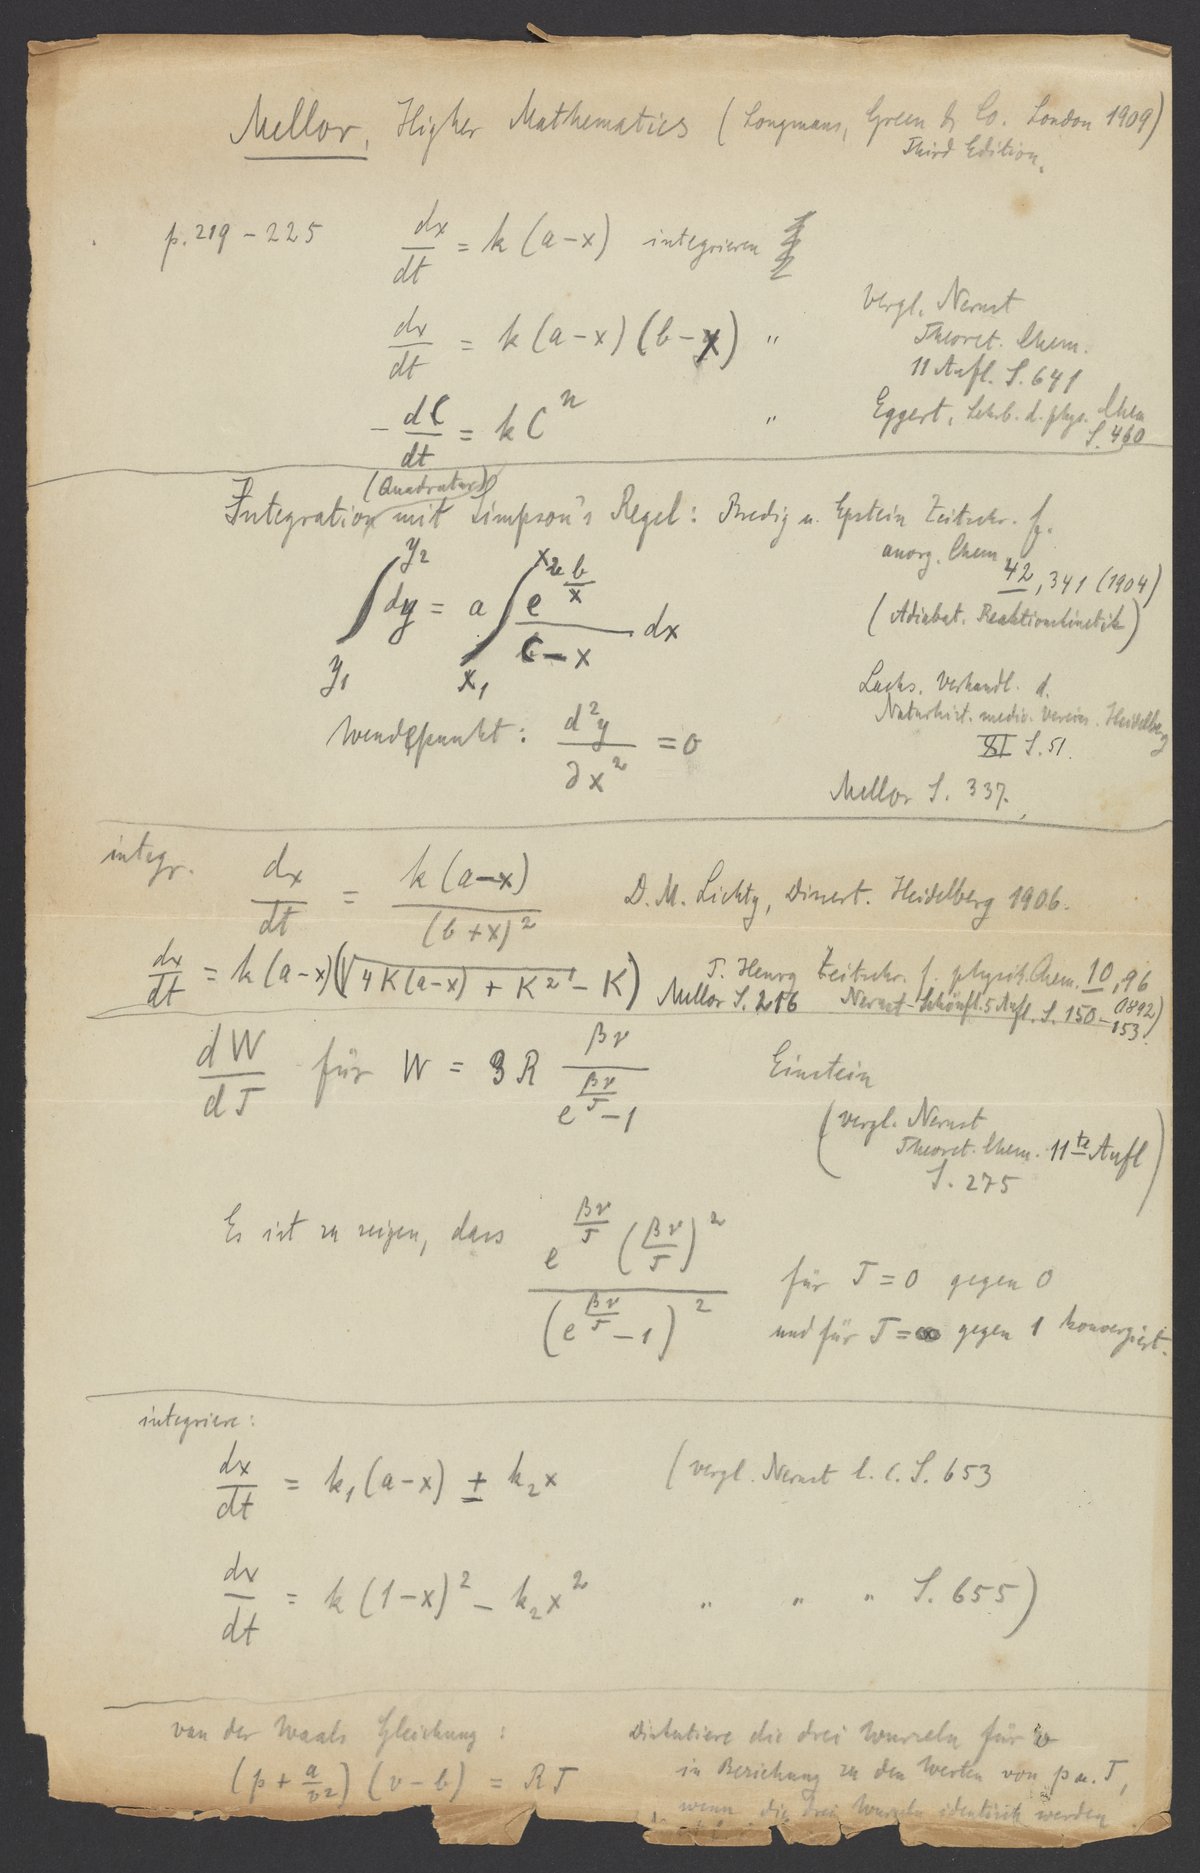 Mellor, Higher Mathematics (Longmans, Green & Co. London 1909)
Third Edition.
p. 219 - 225 dx/dt = k (a-x) integrieren
vergl. Nernst
dx/dt = k (a-x) (b-x) "
Theoret. Chem.
11 Aufl. S. 641
- dC/dt = k C^n "
Eggert, Lehrb. d. phys. Chem
S. 460
(Quadratur)
Integration mit Simpson's Regel: Bredig u. Epstein Zeitschr. f.
anorg. Chem 42, 341 (1904)
∫_{y1}^{y2} dy = a ∫_{x1}^{x2} e^{b/x}/(C-x) dx
(Adiabat. Reaktionskinetik)
Verhandl. d.
Naturhist. mediz. Vereins. Heidelberg
XI S. 51.
Wendepunkt: d²y/∂x² = 0
Mellor S. 337.
integr. dx/dt = k (a-x)/(b+x)² D. M. Lichty, Dissert. Heidelberg 1906.
dx/dt = k (a-x) (√4K(a-x) + K² - K) Zeitschr. f. physik. Chem. 10, 96
(1892)
Mellor S. 216 Nernst-Schönfl. 5 Aufl. S. 150-153
dW/dT für W = 3 R βν/(e^{βν/T} - 1) Einstein
(vergl. Nernst
Theoret. Chem. 11te Aufl
S. 275)
Es ist zu zeigen, dass e^{βν/T} (βν/T)²/(e^{βν/T} - 1)² für T = 0 gegen 0
und für T = ∞ gegen 1 konvergiert.
integriere:
dx/dt = k₁ (a-x) ± k₂x (vergl. Nernst l. c. S. 653
dx/dt = k (1-x)² - k₂x² " " " S. 655)
van der Waals Gleichung: Diskutiere die drei Wurzeln für v
(p + a/v²) (v - b) = RT in Beziehung zu den Werten von p u. T,
wenn die drei Wurzeln identisch werden